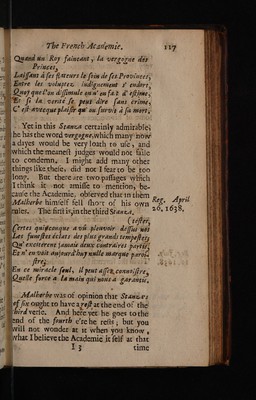 The French Academie. 127
Quand un Roy faineant, la vergogne des
Princes,
Laissant à ses flateurs le soin de ses Provinces,
Entre les voluptez indignement s' endort,
Quoy que l'on dissimule qu'on fait d' estime,
Et si la verité se peut dire sans crime,
C' est avecque plaisir qu' on survit à sa mort.
Yet in this Stanza certainly admirable;
he has the word vergogne, which many now
a dayes would be very loath to use, and
which the meanest judges would not faile
to condemn, I might add many other
things like these, did not I fear to be too
long. But there are two passages which
I think it not amisse to mention, be-
cause the Academie, observed that in them
Malherbe himself fell short of his own
rules. The first is, in the third Stanza,
Reg. April
26, 1638.
(rester,
Certes quiconque a vû pleuvoir dessus nos
Les funestes éclats des plus grands tempestes,
Qu' exciterent jamais deux contraires partis,
Et n' en voit aujourd'huy nulle marque parois-
stre;
En ce miracle seul, il peut assez connoistre,
Quelle force a la main qui nous a garantis.
Malherbe was of opinion that Stanzaes
of six ought to have a rest at the end of the
third verse. And here yet he goes to the
end of the fourth e're he rests; but you
will not wonder at it when you know,
what I believe the Academie it self at that
I 3 time